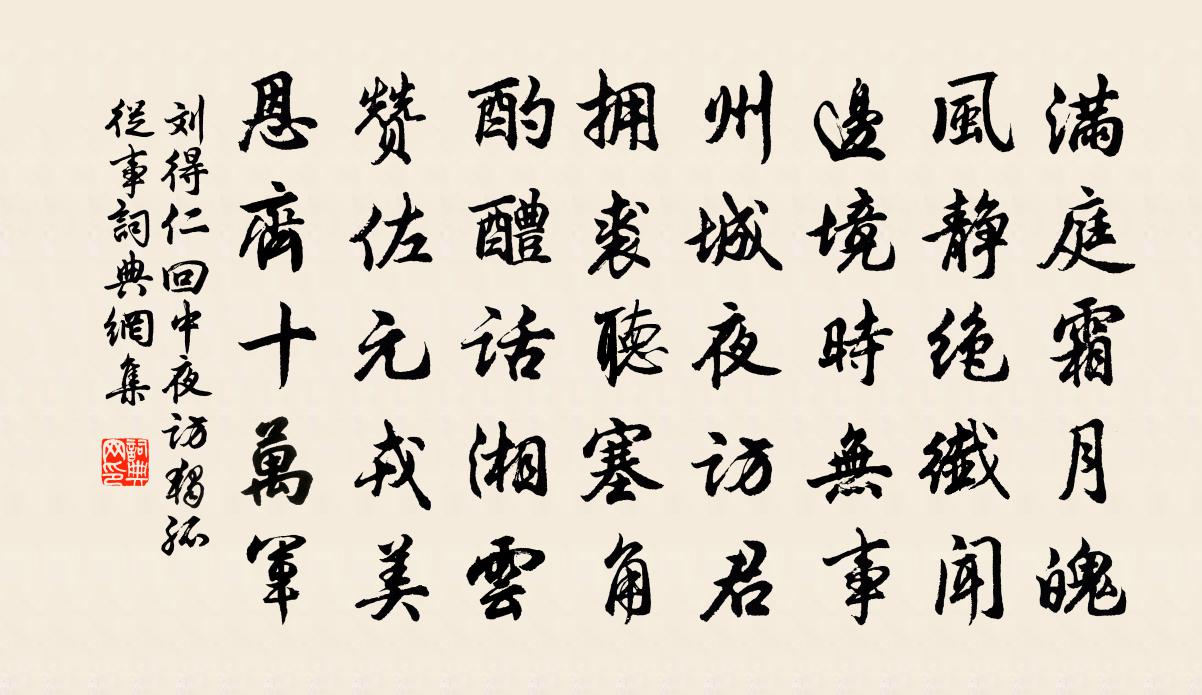 滿庭霜月魄
風静绝纖闻
邊境時無事
州城夜访君
拥裘聽塞角
酌醴话湘雲
赞佐元戎美
恩齊十萬軍
刘得仁回中夜访獨孤
從事詞典網集
詞典
网印